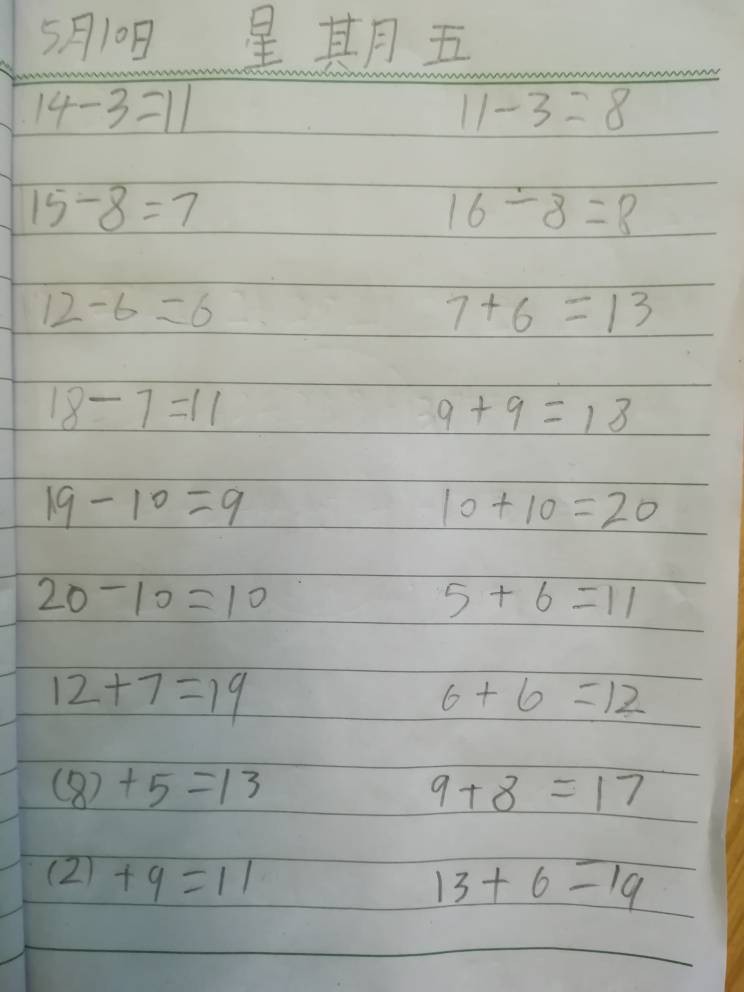 5月10日 星期五
14-3=11 11-3=8
15-8=7 16-8=8
12-6=6 7+6=13
18-7=11 9+9=18
19-10=9 10+10=20
20-10=10 5+6=11
12+7=19 6+6=12
(8)+5=13 9+8=17
(2)+9=11 13+6=19